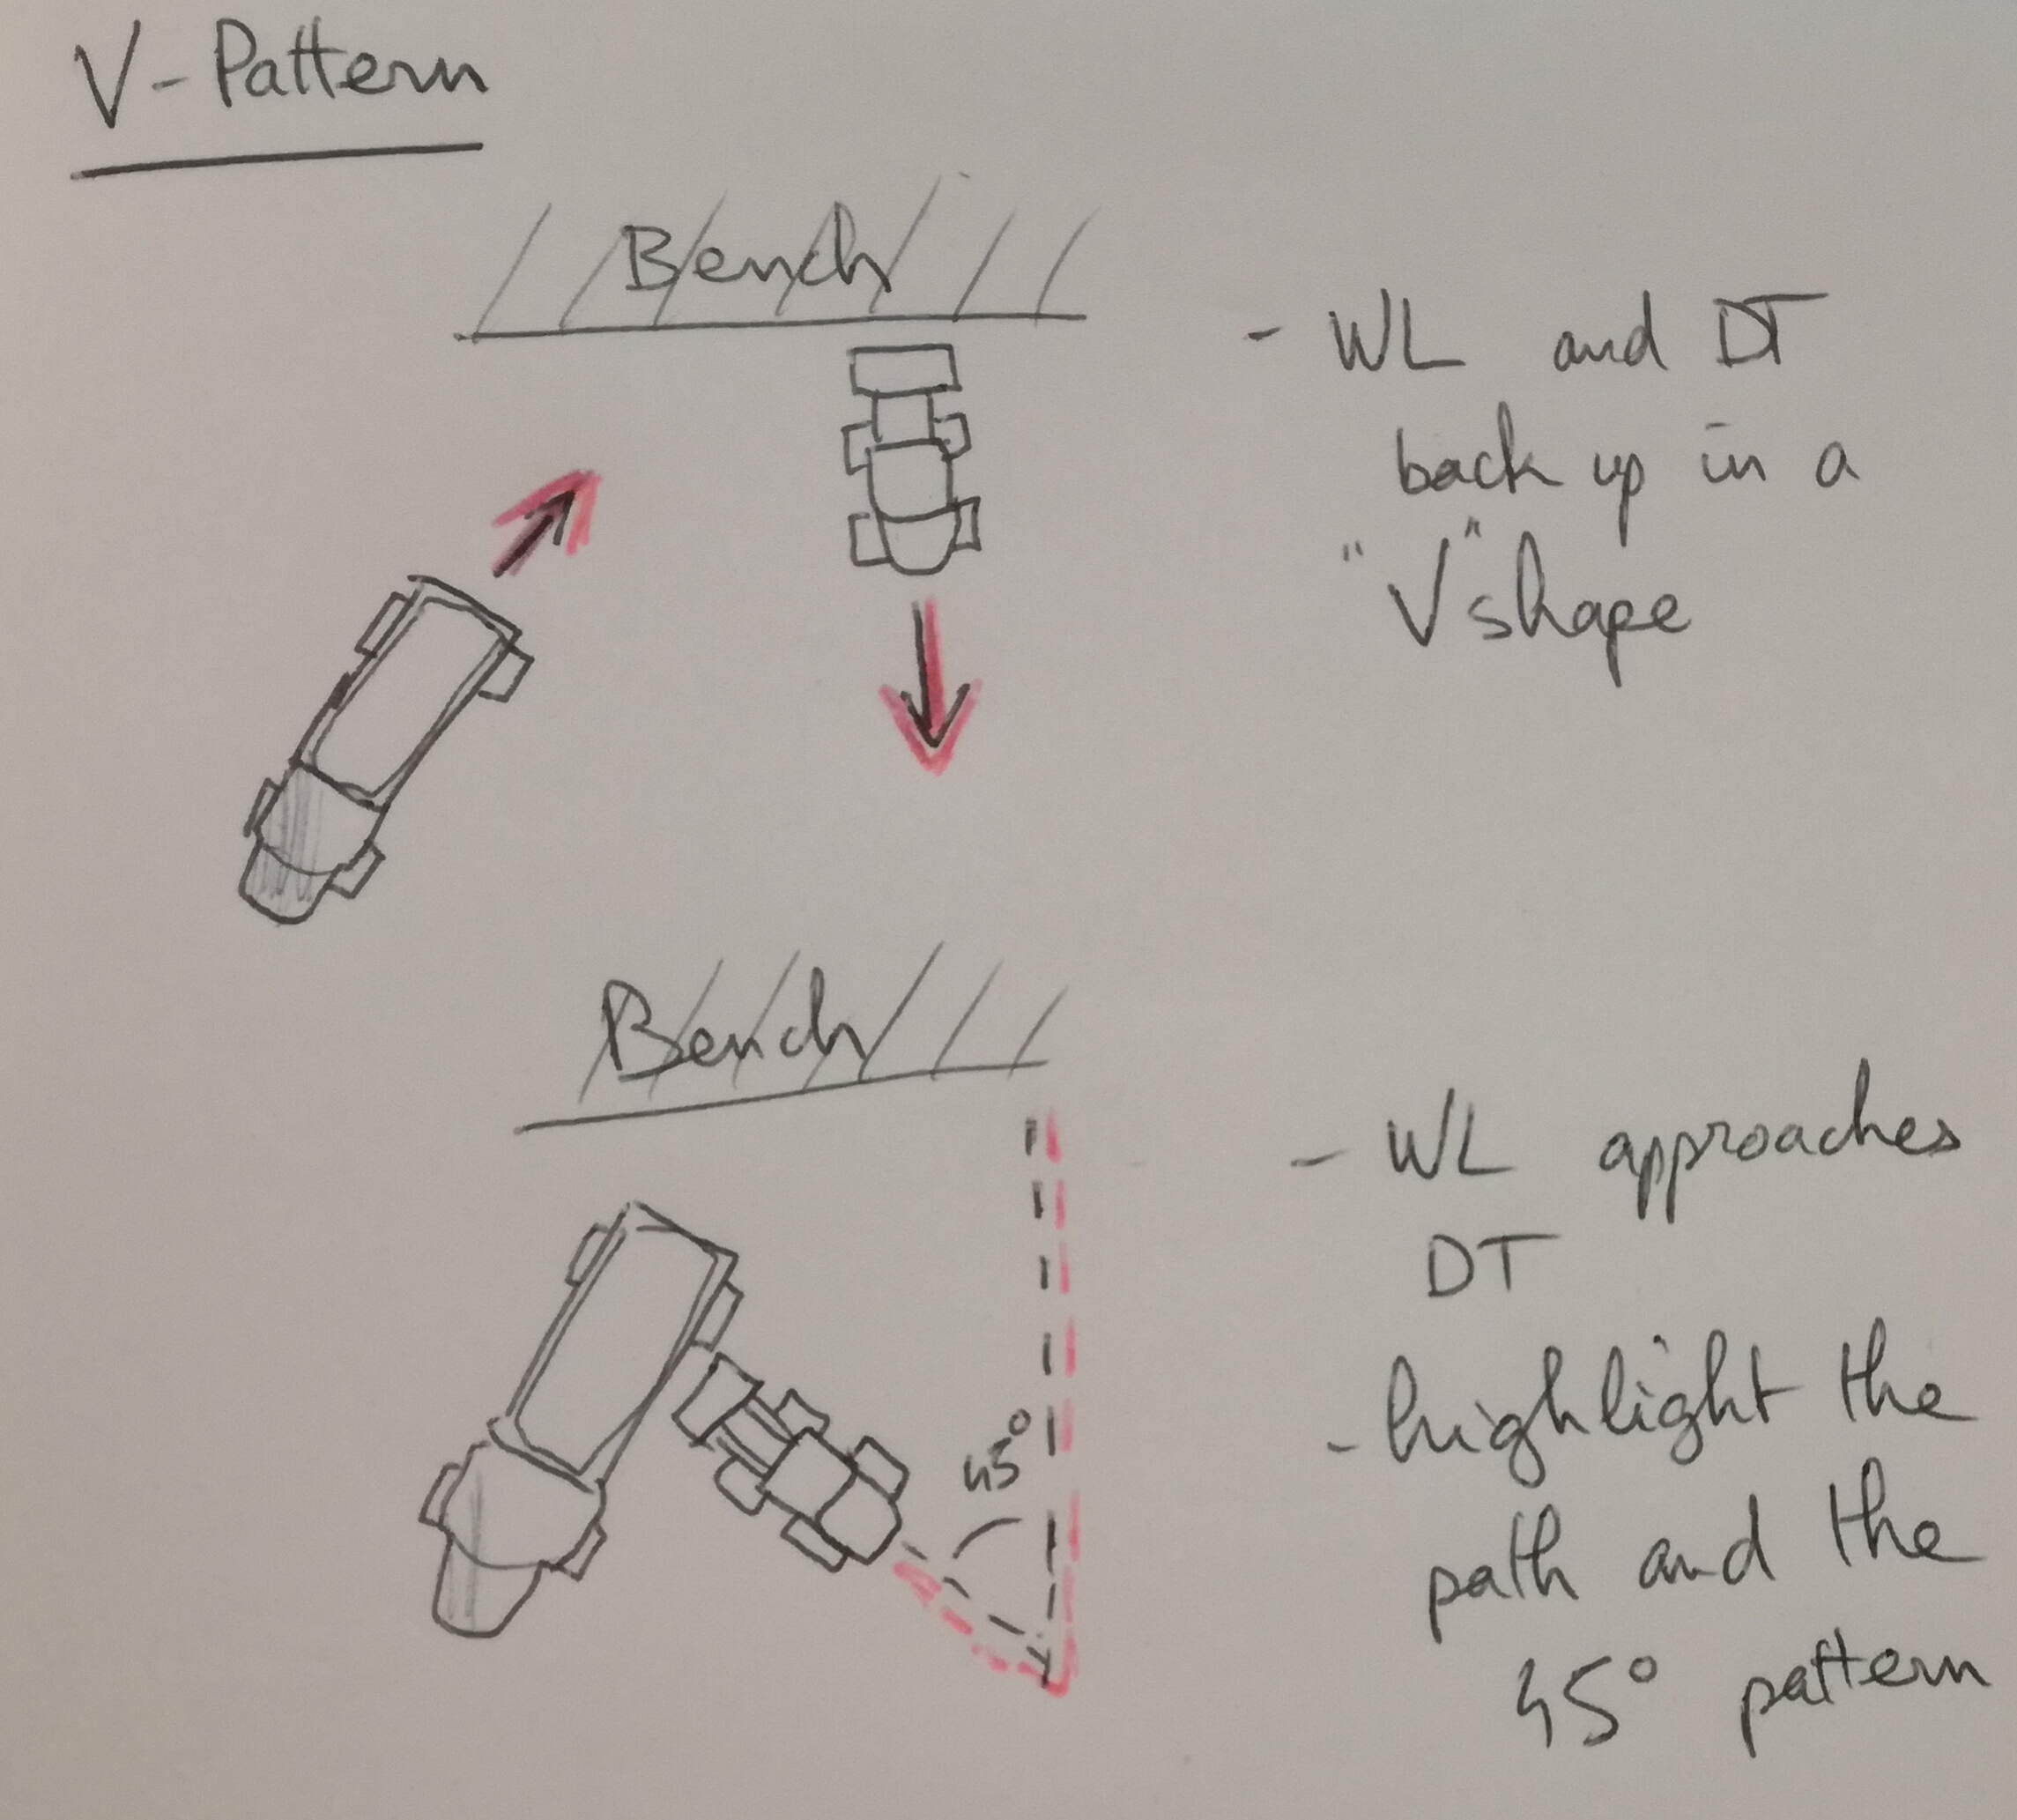 V-Pattern
Bench
- WL and DT
back up in a
"V" shape
Bench
- WL approaches
DT
45°
- highlight the
path and the
45° pattern